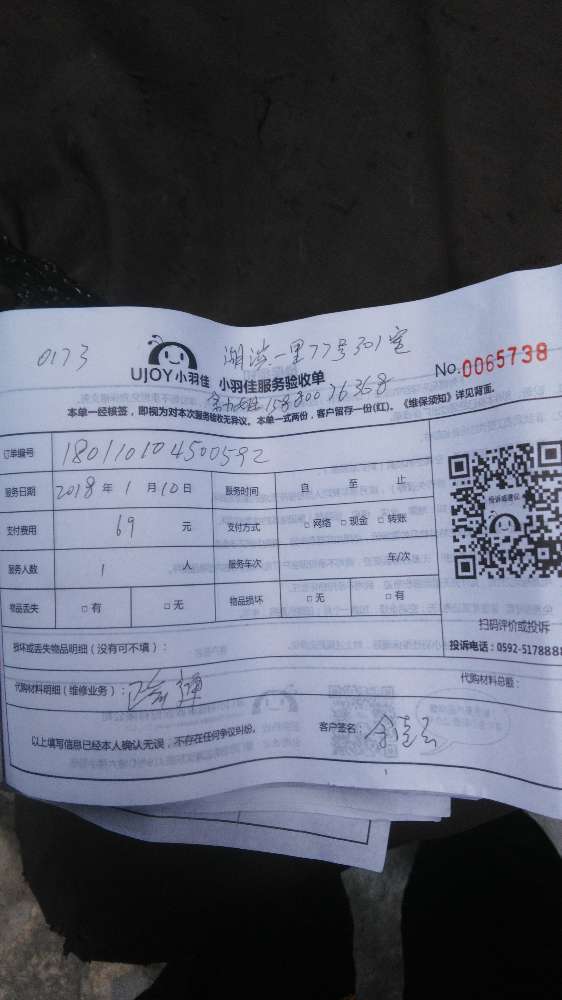 0173
湖滨一里77号301室
UJOY小羽佳 小羽佳服务验收单
No.0065738
15880076368
本单一经核签，即视为对本次服务验收无异议。本单一式两份，客户留存一份(红)。《维保须知》详见背面。
订单编号 180110104500592
服务日期 2018年1月10日 服务时间 自 至 止
支付费用 69 元 支付方式 □网络 □现金 □转账
服务人数 1 人 服务车次 车/次
物品丢失 □有 □无 物品损坏 □无 □有
投诉或建议
扫码评价或投诉
投诉电话：0592-5178888
损坏或丢失物品明细（没有可不填）：
代购材料明细（维修业务）： 代购材料总额：
以上填写信息已经本人确认无误，不存在任何争议纠纷。 客户签名：
1